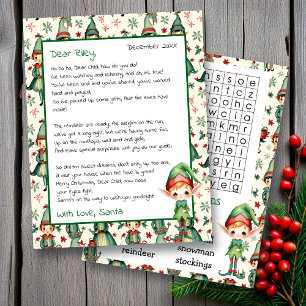 Dear Riley,
December 20XX
Ho ho ho, Dear Child, how do you do!
I've been watching and listening and oh, it's true!
You've been kind and you've shared, you've worked
hard and played,
So I've packed up some gifts, that the elves have
made!
The reindeer are ready, the sleigh's on the run,
We've got a long night, but we're having some fun.
Up on the rooftops, we'll land and glide,
And leave special surprises with joy as our guide.
So dream sweet dreams, don't stay up too late,
I'll visit your house when the hour is great!
Merry Christmas, Dear Child, now close
your eyes tight,
Santa's on his way to wish you goodnight!
With Love, Santa
s s o e
n t c z
o n c i
c k m r
k n o
e i w
l n m
g s a
r s r
y e g
DS
reindeer
snowman
stockings